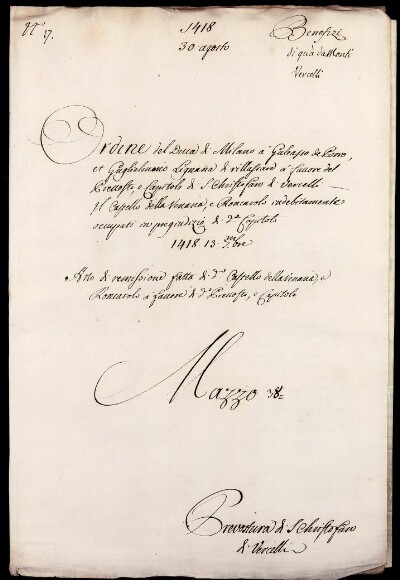 N.° 17.
1418
30 agosto
Benefizi
di quà da Monti
Vercelli
Ordine del Duca di Milano à Galeazzo de Porro,
et Guglielmino Lignana di villasiare à favore del
Prevosto, e Capitolo di S. Christoforo di Vercelli
Il Castello della Venaria, e Roncarolo indebitamente
occupati in pregiudizio di d.° Capitolo
1418 13 9.bre
Atto di remissione fatta di d.° Castello della Venaria, e
Roncarolo à favore di d.° Prevosto, e Capitolo
Mazzo 38
Prevostura di S. Christoforo
di Vercelli